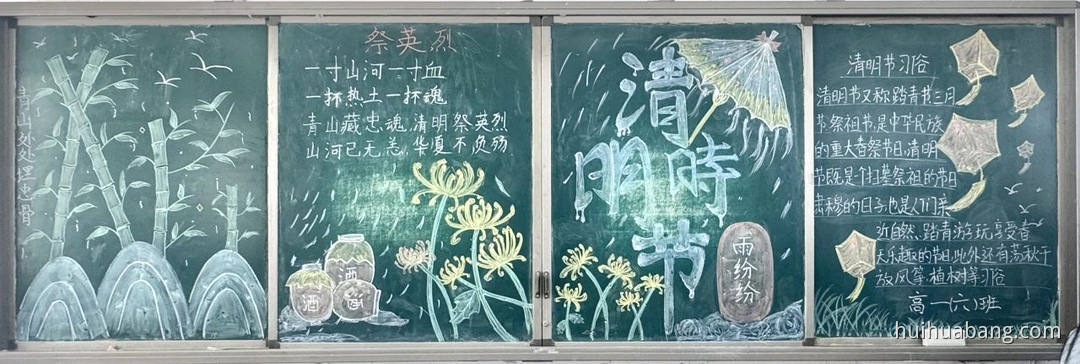 青山处处埋忠骨
祭英烈
一寸山河一寸血
一抔热土一抔魂
青山藏忠魂,清明祭英烈
山河已无恙,华夏不负殇
酒
酒
清
明時
节
雨纷纷
清明节习俗
清明节又称踏青节三月
节祭祖节,是中华民族
的重大春祭节日,清明
节既是个扫墓祭祖的节日
肃穆的日子,也是人们亲
近自然、踏青游玩,享受春
天乐趣的节日,此外还有荡秋千
放风筝,植树等习俗
高一(六)班
huihuabang.com